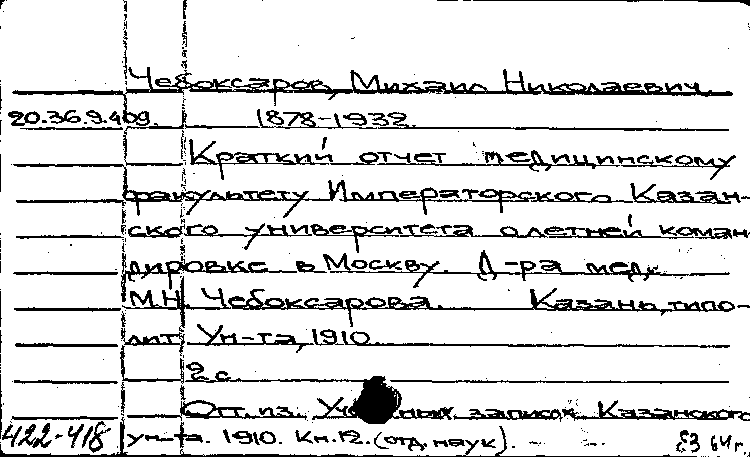 Чебоксаров, Михаил Николаевич.
20.36.9.409. 1878-1932.
Краткий отчет медицинскому
факультету Императорского Казан-
ского университета о летней коман-
дировке в Москву. Д-ра мед.
М.Н. Чебоксарова. Казань, типо-
лит. Ун-та, 1910.
2 с.
Отт. из. Ученых записок Казанского
422-418 ун-та. 1910. Кн.12. (отд. наук). –
64 г.